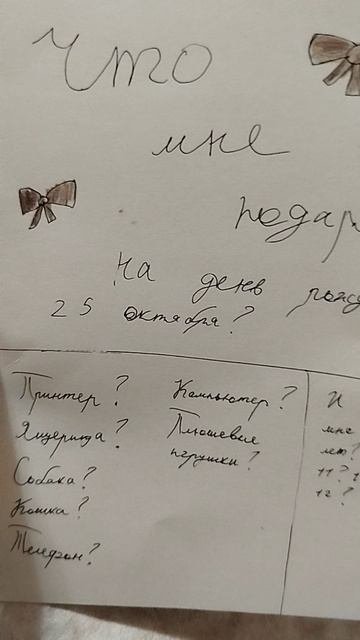 Что
мне
подар
На день рожд
25 октября?
Принтер?
Ящерица?
Собака?
Кошка?
Телефон?
Компьютер?
Плюшевые
игрушки?
И
мне
лет?
11?
12?